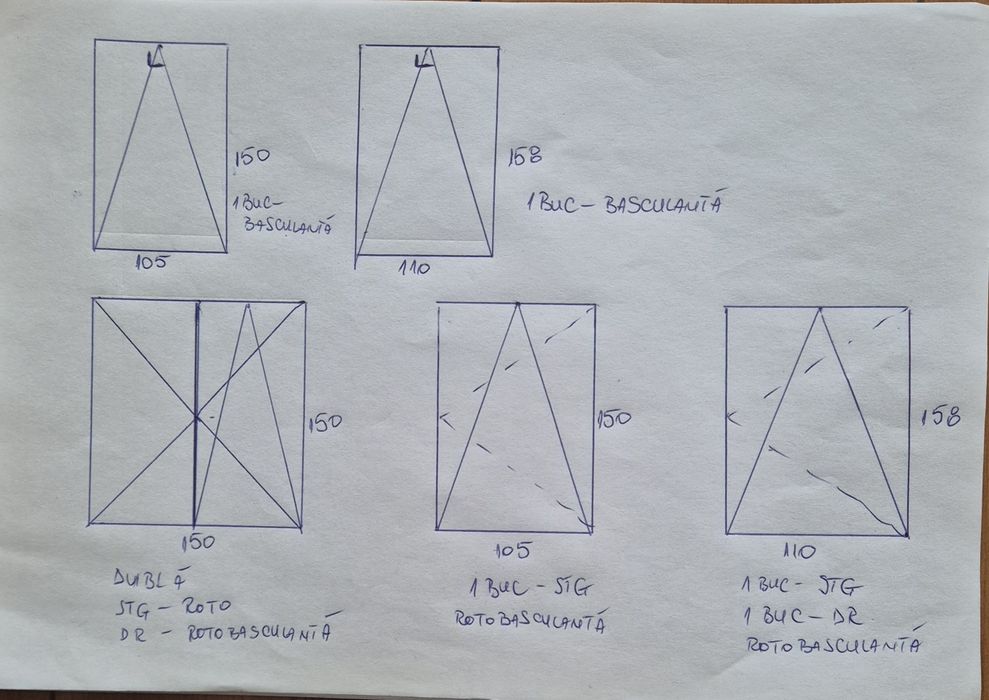 150
1 BUC-
BASCULANTĂ
105
158
1 BUC - BASCULANTĂ
110
150
150
DUBLĂ
STG - ROTO
DR - ROTOBASCULANTĂ
150
105
1 BUC - STG
ROTOBASCULANTĂ
158
110
1 BUC - STG
1 BUC - DR
ROTOBASCULANTĂ